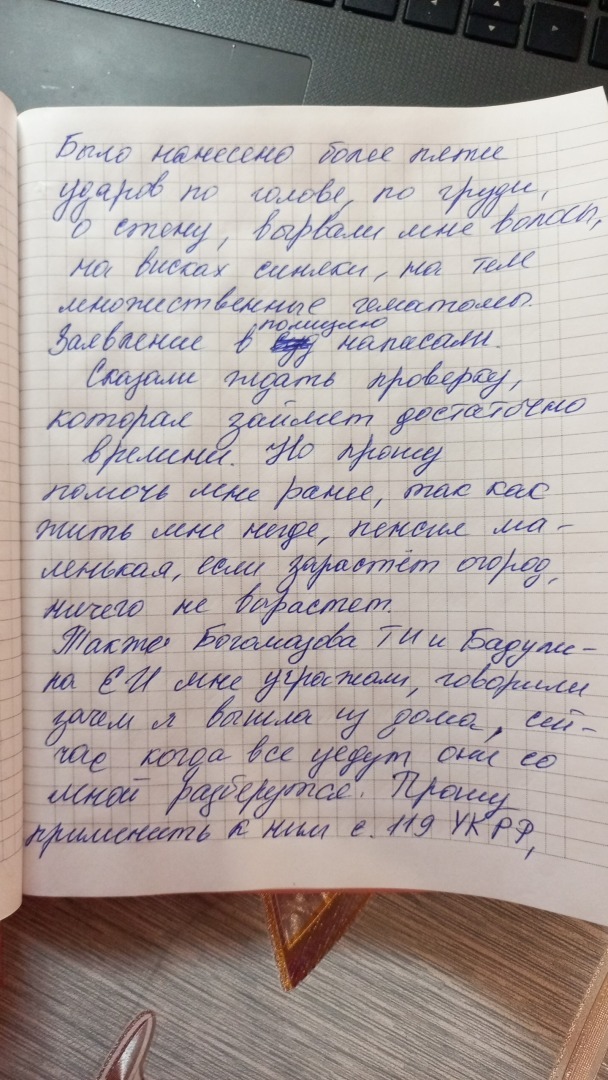 Было нанесено более пяти
ударов по голове, по груди,
о стену, вырвали мне волосы,
на висках синяки, на теле
множественные гематомы.
Заявление в полицию написали.
Сказали ждать проверку,
которая займет достаточно
времени. Но прошу
помочь мне ранее, так как
жить мне негде, пенсия ма-
ленькая, если зарастёт огород,
ничего не вырастет.
Также Богомазова ТИ и Бадули-
на ЕИ мне угрожали, говорили
зачем я вышла из дома, сей-
час когда все уедут они со
мной разберутся. Прошу
применить к ним с. 119 УК РФ,